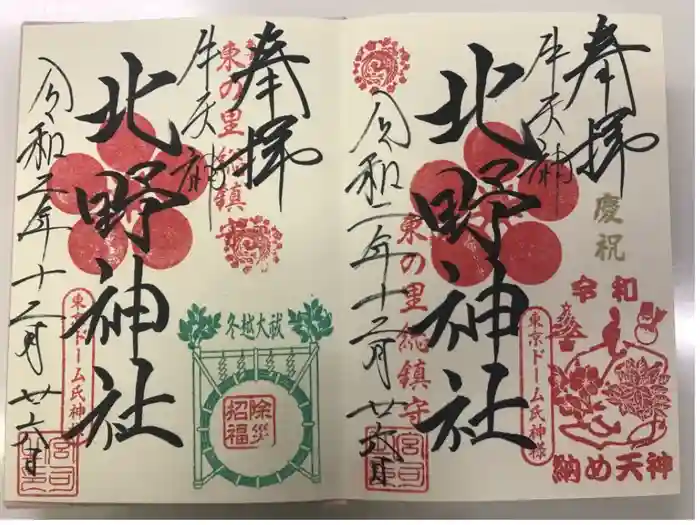 奉拝
慶祝
牛天神
北野神社
東の里総鎮守
令和二年十二月廿六日
東京ドーム氏神様
令和
納め天神
宮司
奉拝
牛天神
東の里総鎮守
北野神社
令和二年十二月廿六日
東京ドーム氏神様
冬越大祓
除災
招福
宮司